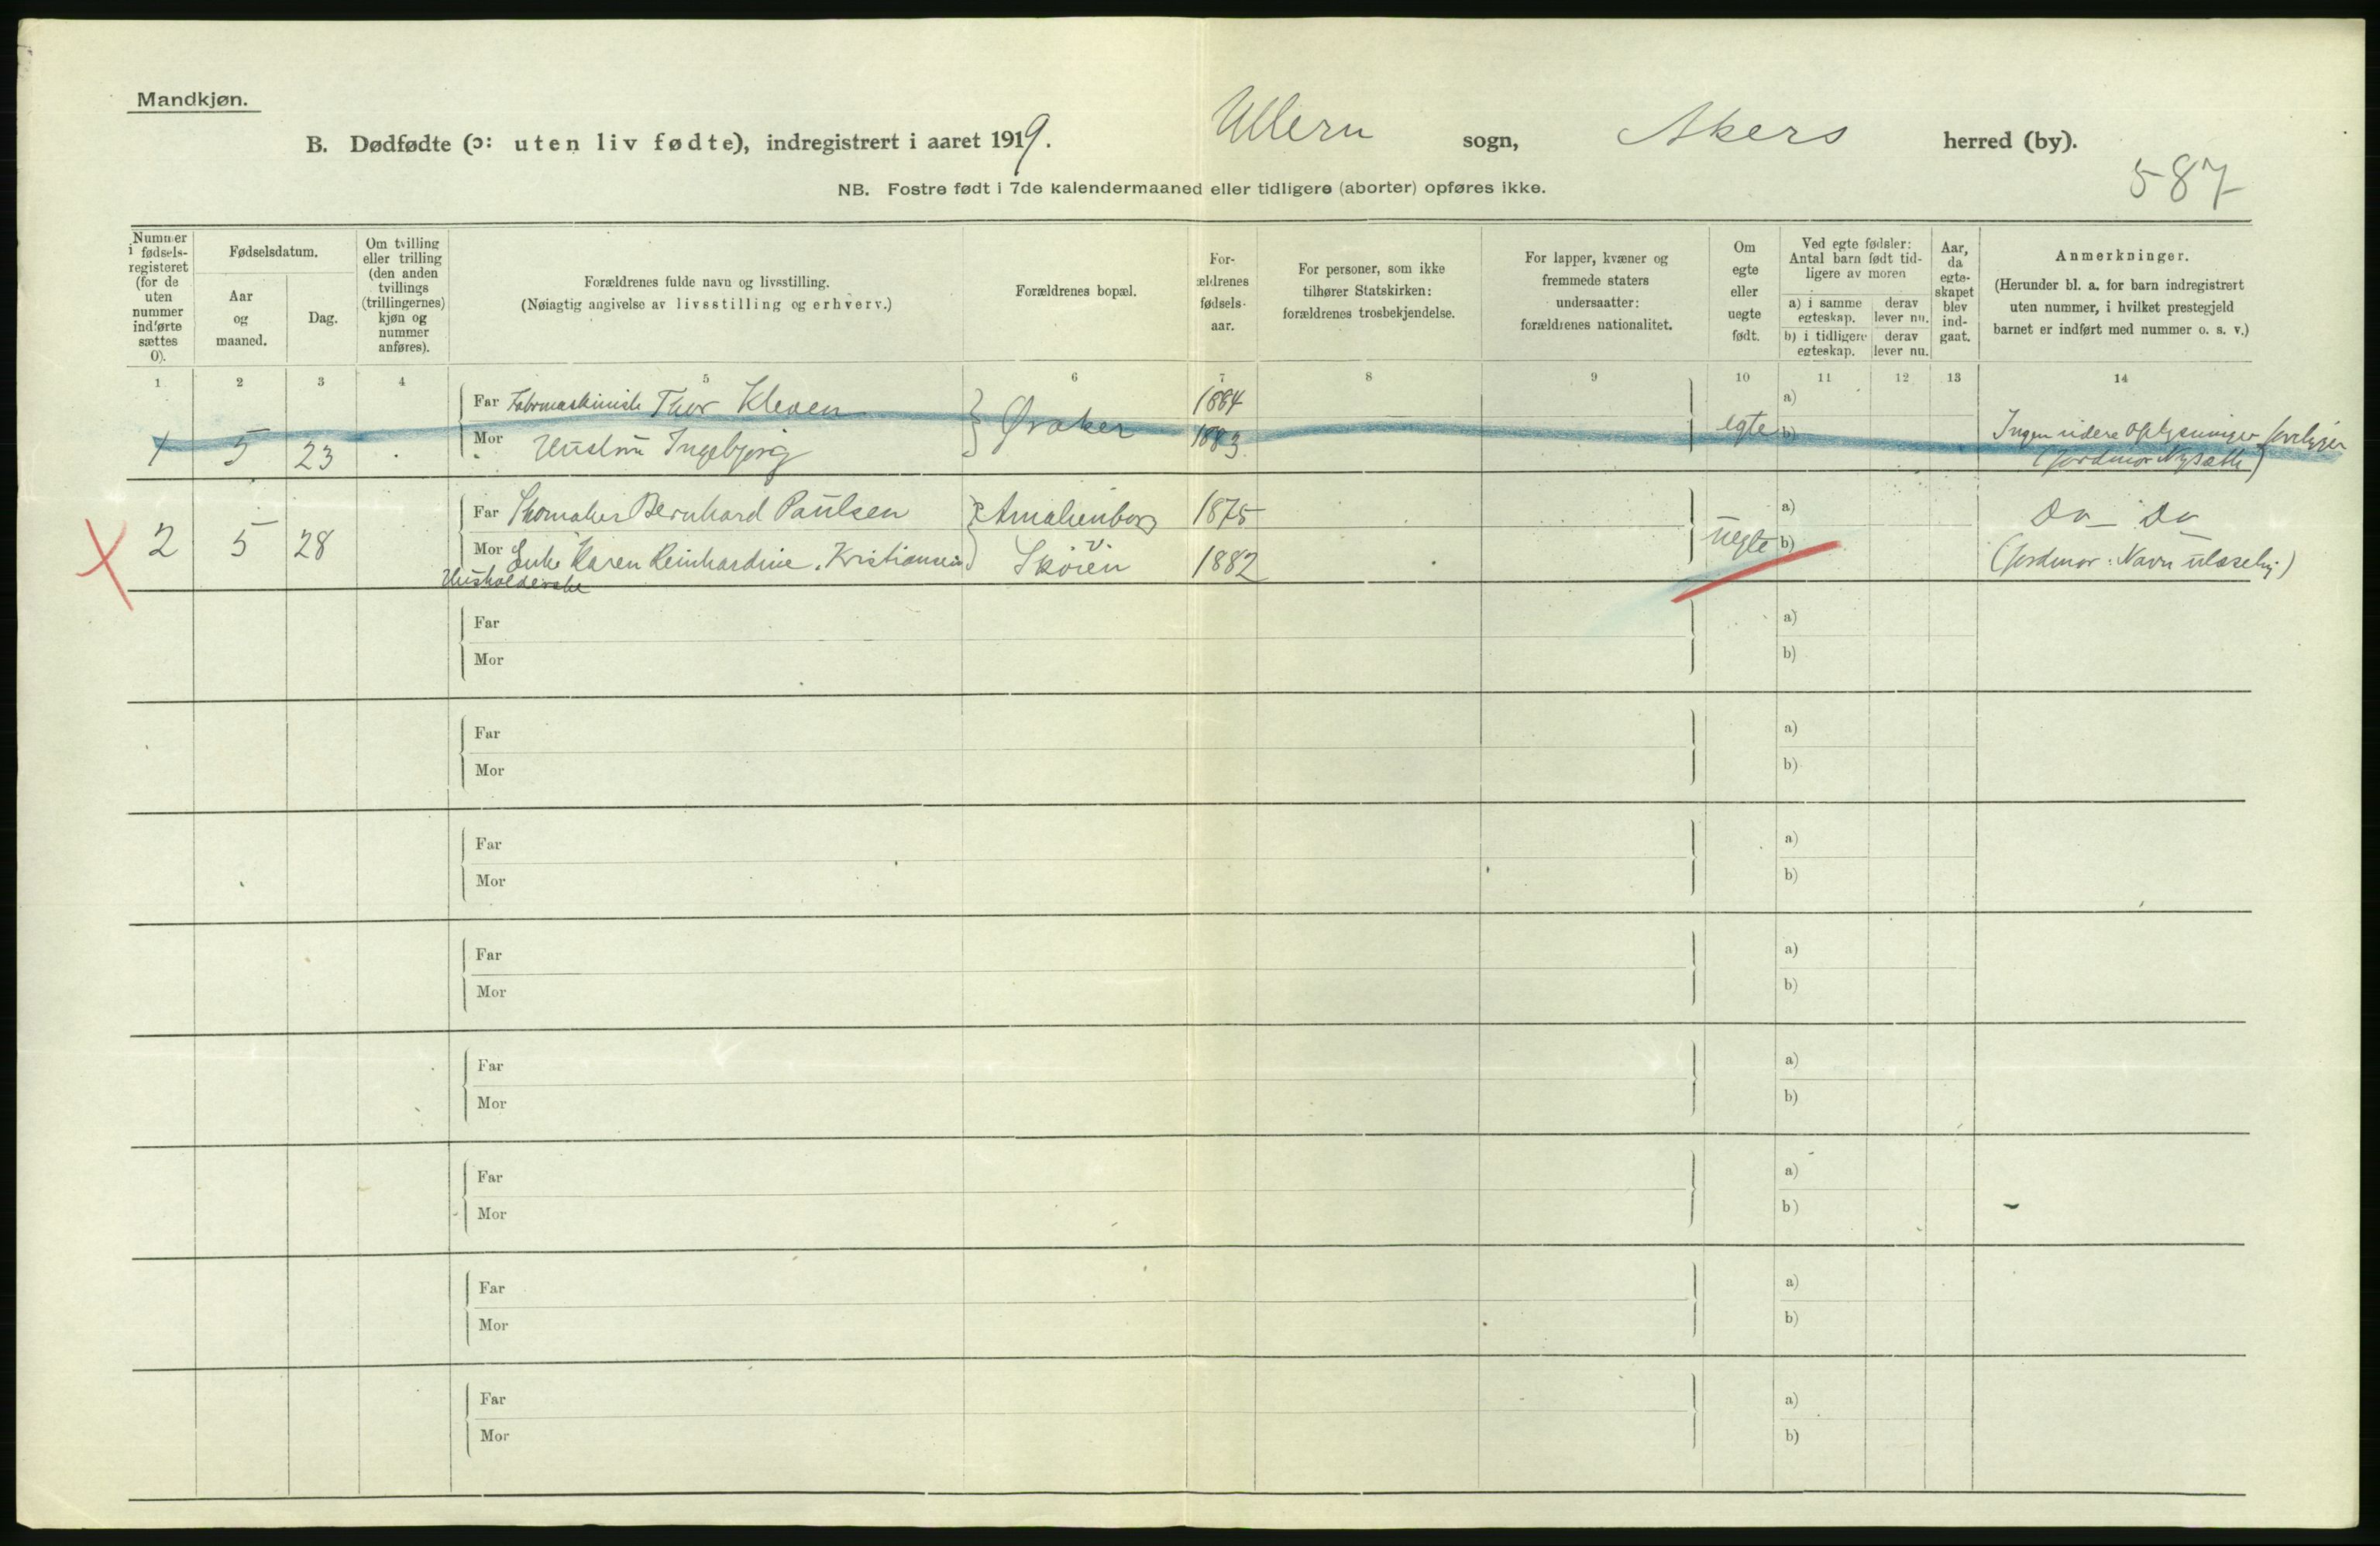 Mandkjøn.
B. Dødfødte (ɔ: uten liv fødte), indregistrert i aaret 1919. Ullern sogn, Akers herred (by).
587
NB. Fostre født i 7de kalendermaaned eller tidligere (aborter) opføres ikke.
Nummer i fødsels-registeret (for de uten nummer indførte sættes 0).
Fødselsdatum.
Aar og maaned.
Dag.
Om tvilling eller trilling (den anden tvillings (trillingernes) kjøn og nummer anføres).
Forældrenes fulde navn og livsstilling.
(Nøiagtig angivelse av livsstilling og erhverv.)
Forældrenes bopæl.
For-ældrenes fødsels-aar.
For personer, som ikke tilhører Statskirken: forældrenes trosbekjendelse.
For lapper, kvæner og fremmede staters undersaatter: forældrenes nationalitet.
Om egte eller uegte født.
Ved egte fødsler: Antal barn født tid-ligere av moren
a) i samme egteskap.
derav lever nu.
b) i tidligere egteskap.
derav lever nu.
Aar, da egte-skapet blev ind-gaat.
Anmerkninger.
(Herunder bl. a. for barn indregistrert uten nummer, i hvilket prestegjeld barnet er indført med nummer o. s. v.)
1 2 3 4 5 6 7 8 9 10 11 12 13 14
Far Thor Kleven 1884 a)
1 5 23 Mor Hustru Ingebjørg Øraker 1883 egte b) Ingen videre oplysninger foreligger
(Jordmor Nysæth)
Far Thomales Bernhard Paulsen Amalienborg 1875 a) Do — Do
2 5 28 Mor Enke Karen Reinhardine Kristiansen v. Skøien 1882 uegte b) (Jordmor: Navn ulæselig)
Husholderske
Far a)
Mor b)
Far a)
Mor b)
Far a)
Mor b)
Far a)
Mor b)
Far a)
Mor b)
Far a)
Mor b)
Far a)
Mor b)
Far a)
Mor b)